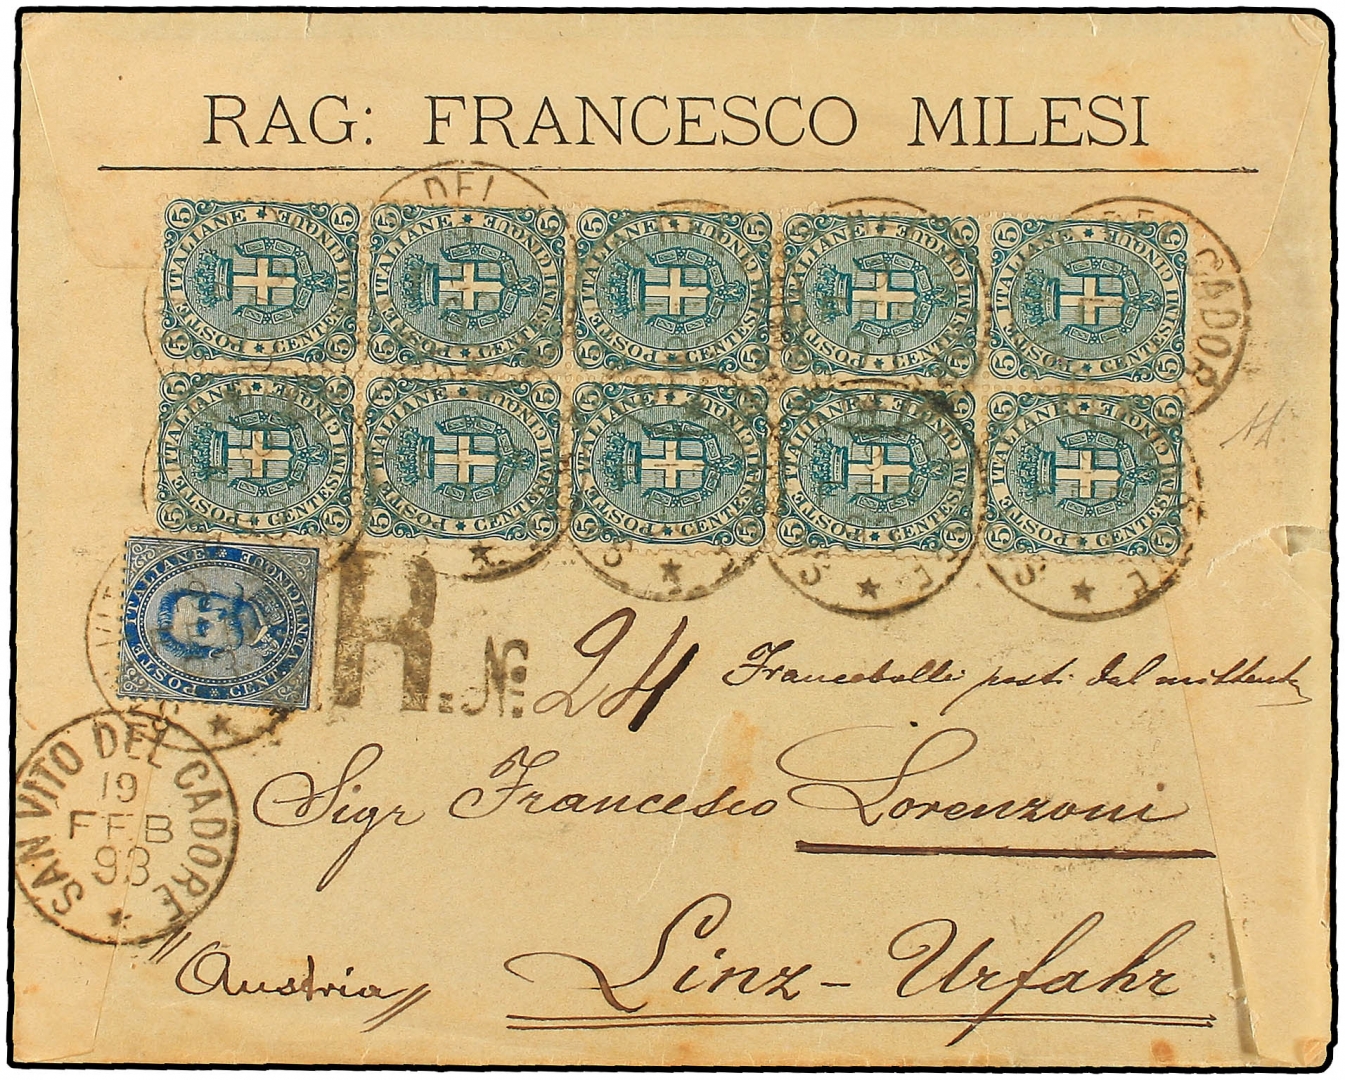 RAG: FRANCESCO MILESI
5 POSTE ITALIANE * CENTESIMI CINQUE * 5
5 POSTE ITALIANE * CENTESIMI CINQUE * 5
5 POSTE ITALIANE * CENTESIMI CINQUE * 5
5 POSTE ITALIANE * CENTESIMI CINQUE * 5
5 POSTE ITALIANE * CENTESIMI CINQUE * 5
5 POSTE ITALIANE * CENTESIMI CINQUE * 5
5 POSTE ITALIANE * CENTESIMI CINQUE * 5
5 POSTE ITALIANE * CENTESIMI CINQUE * 5
5 POSTE ITALIANE * CENTESIMI CINQUE * 5
5 POSTE ITALIANE * CENTESIMI CINQUE * 5
POSTE ITALIANE * CENT. VENTICINQUE *
R. No. 24
Francobolli posti dal mittente
SAN VITO DEL CADORE
19
FEB
93
Sigr Francesco Lorenzoni
Linz - Urfahr
"Austria"